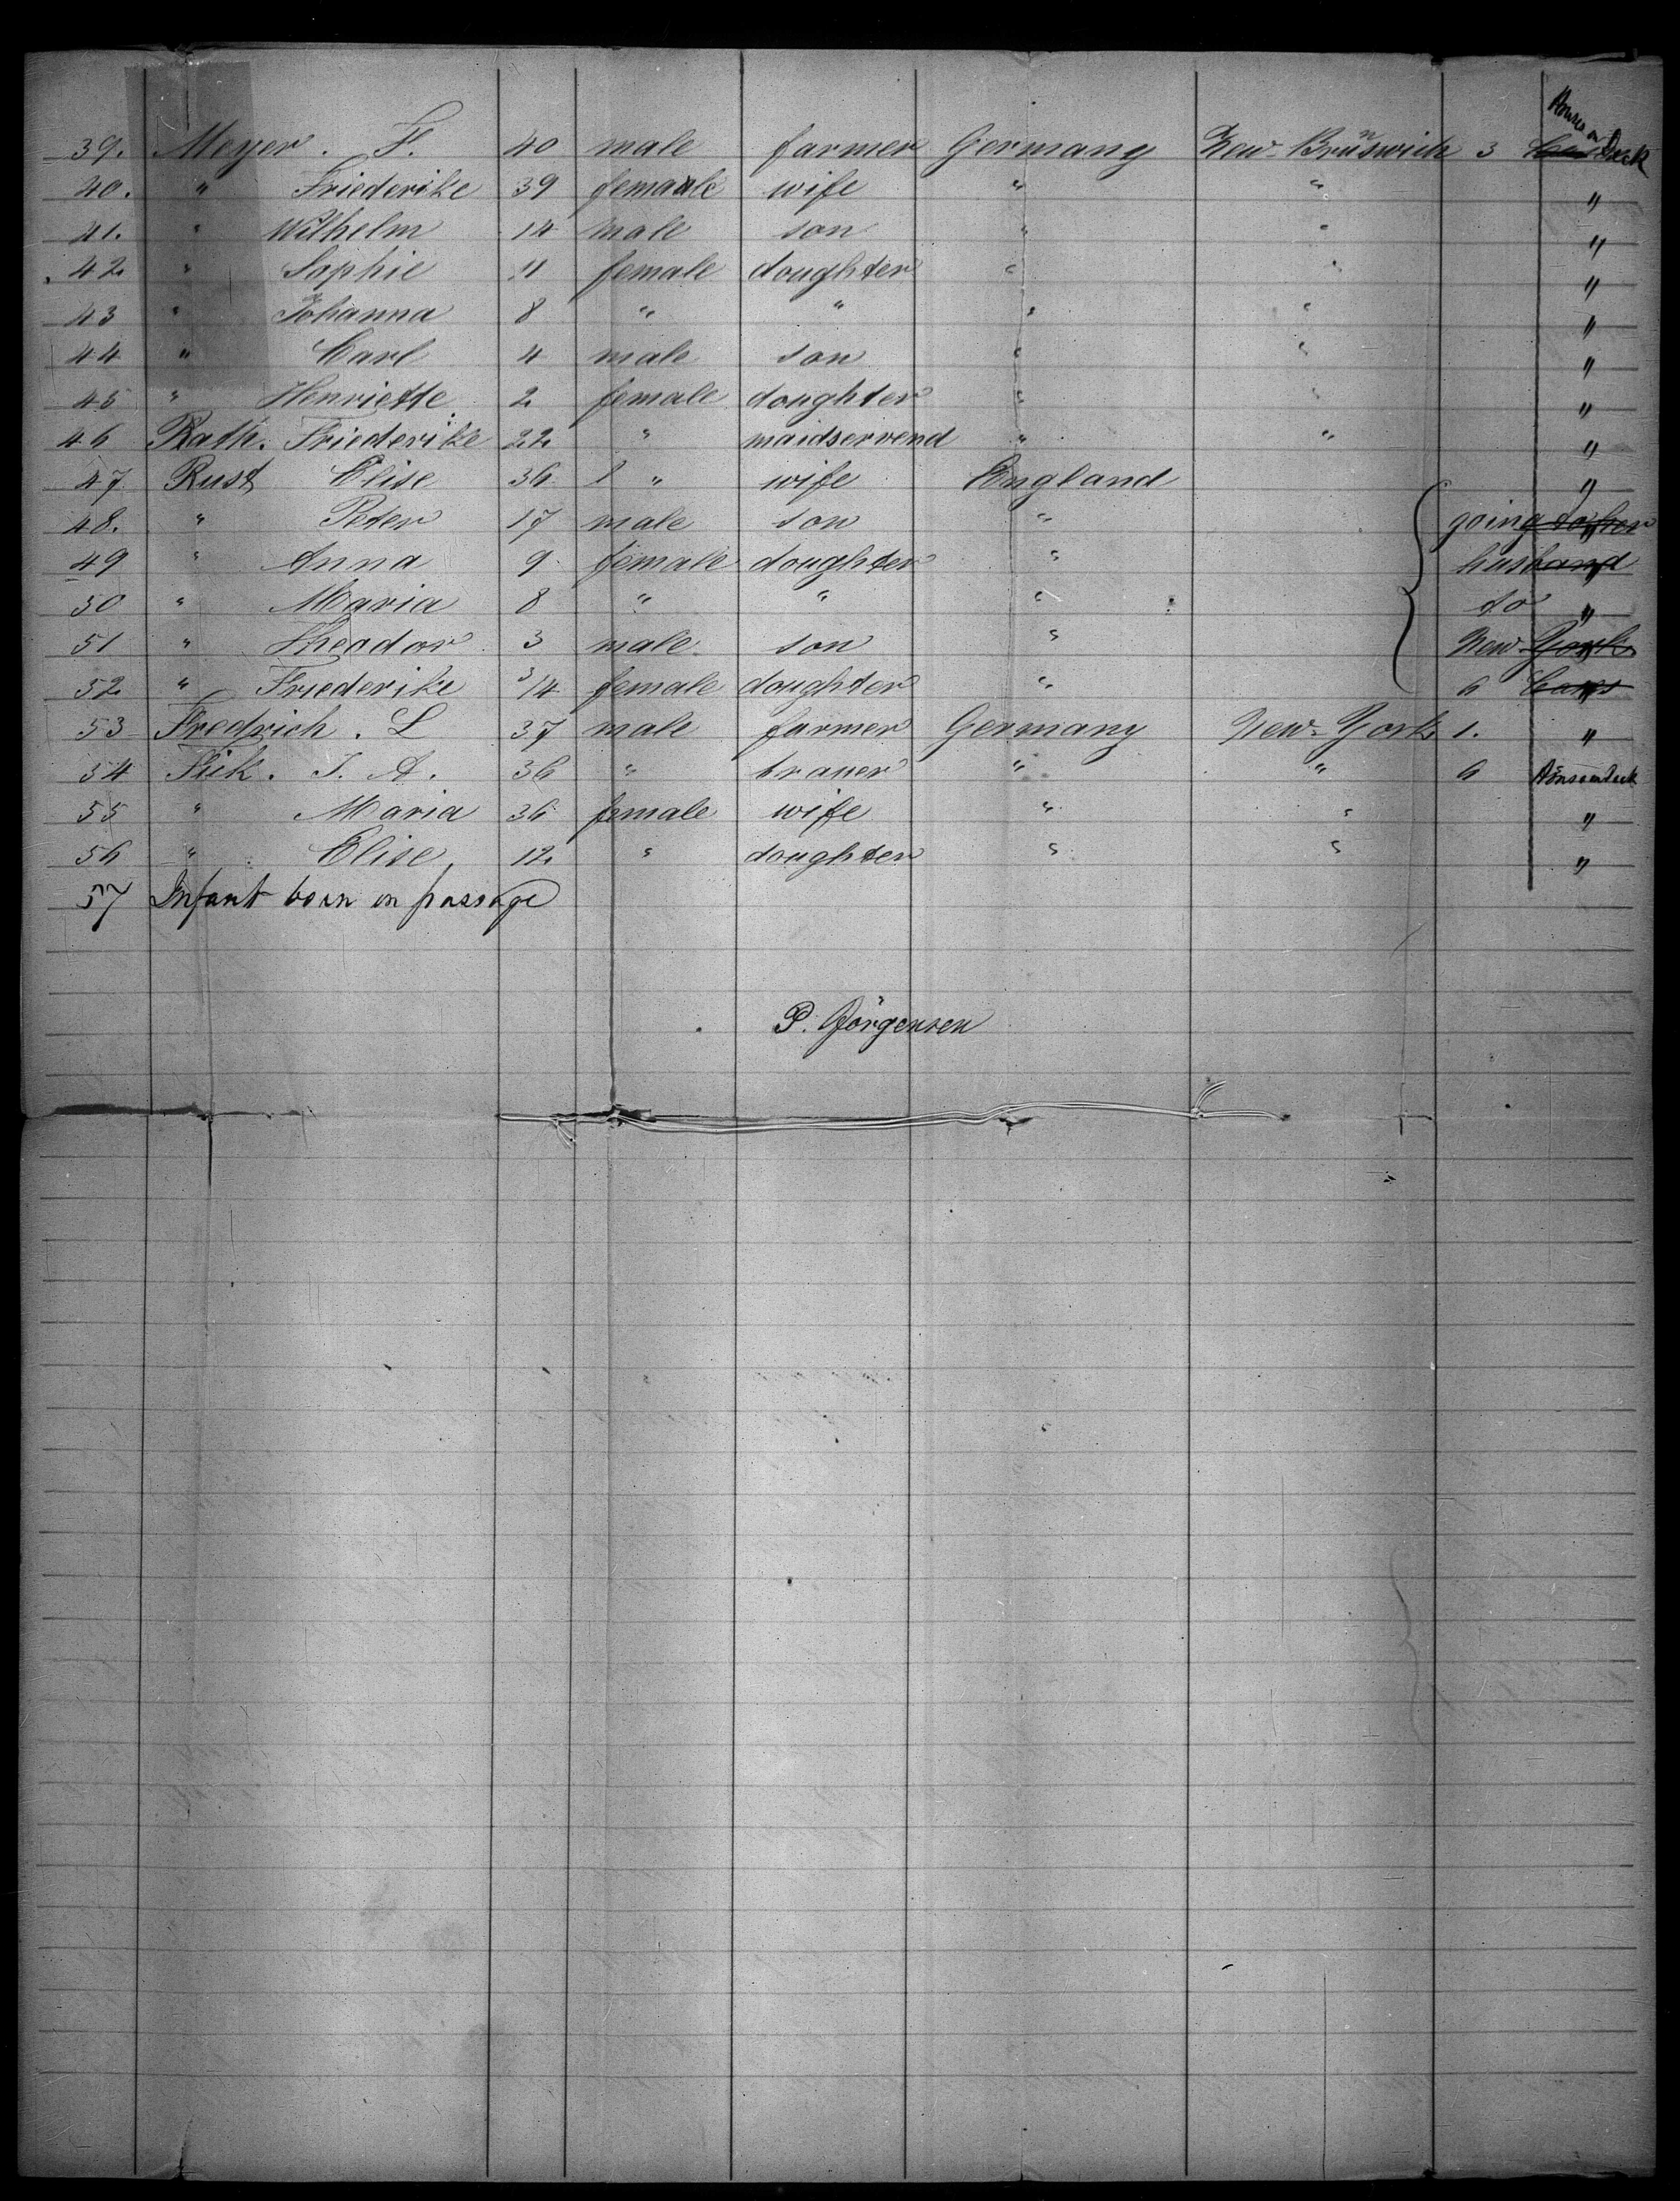 39. Meyer. F. 40 male farmer Germany New-Brünswich 3 House on Deck
40. " Friederike 39 female wife " " "
41. " Wilhelm 14 male son " " "
42 " Sophie 11 female doughter " " "
43 " Johanna 8 " " " " "
44 " Carl 4 male son " " "
45 " Henriette 2 female doughter " " "
46 Rath. Friederike 22 " maidservend " " "
47 Rust Elise 36 " wife England "
48. " Peter 17 male son " going to her "
49 " Anna 9 female doughter " husband "
50 " Maria 8 " " " to "
51 " Theodor 3 male son " New-York "
52 " Friederike 3/4 female doughter " 6 Cases "
53 Fredrich. L 37 male farmer Germany New-York 1. "
54 Fick. J. A. 36 " braner " " 6 House on Deck
55 " Maria 36 female wife " " "
56 " Elise 12 " doughter " " "
57 Infant born on passage
P. Jörgensen